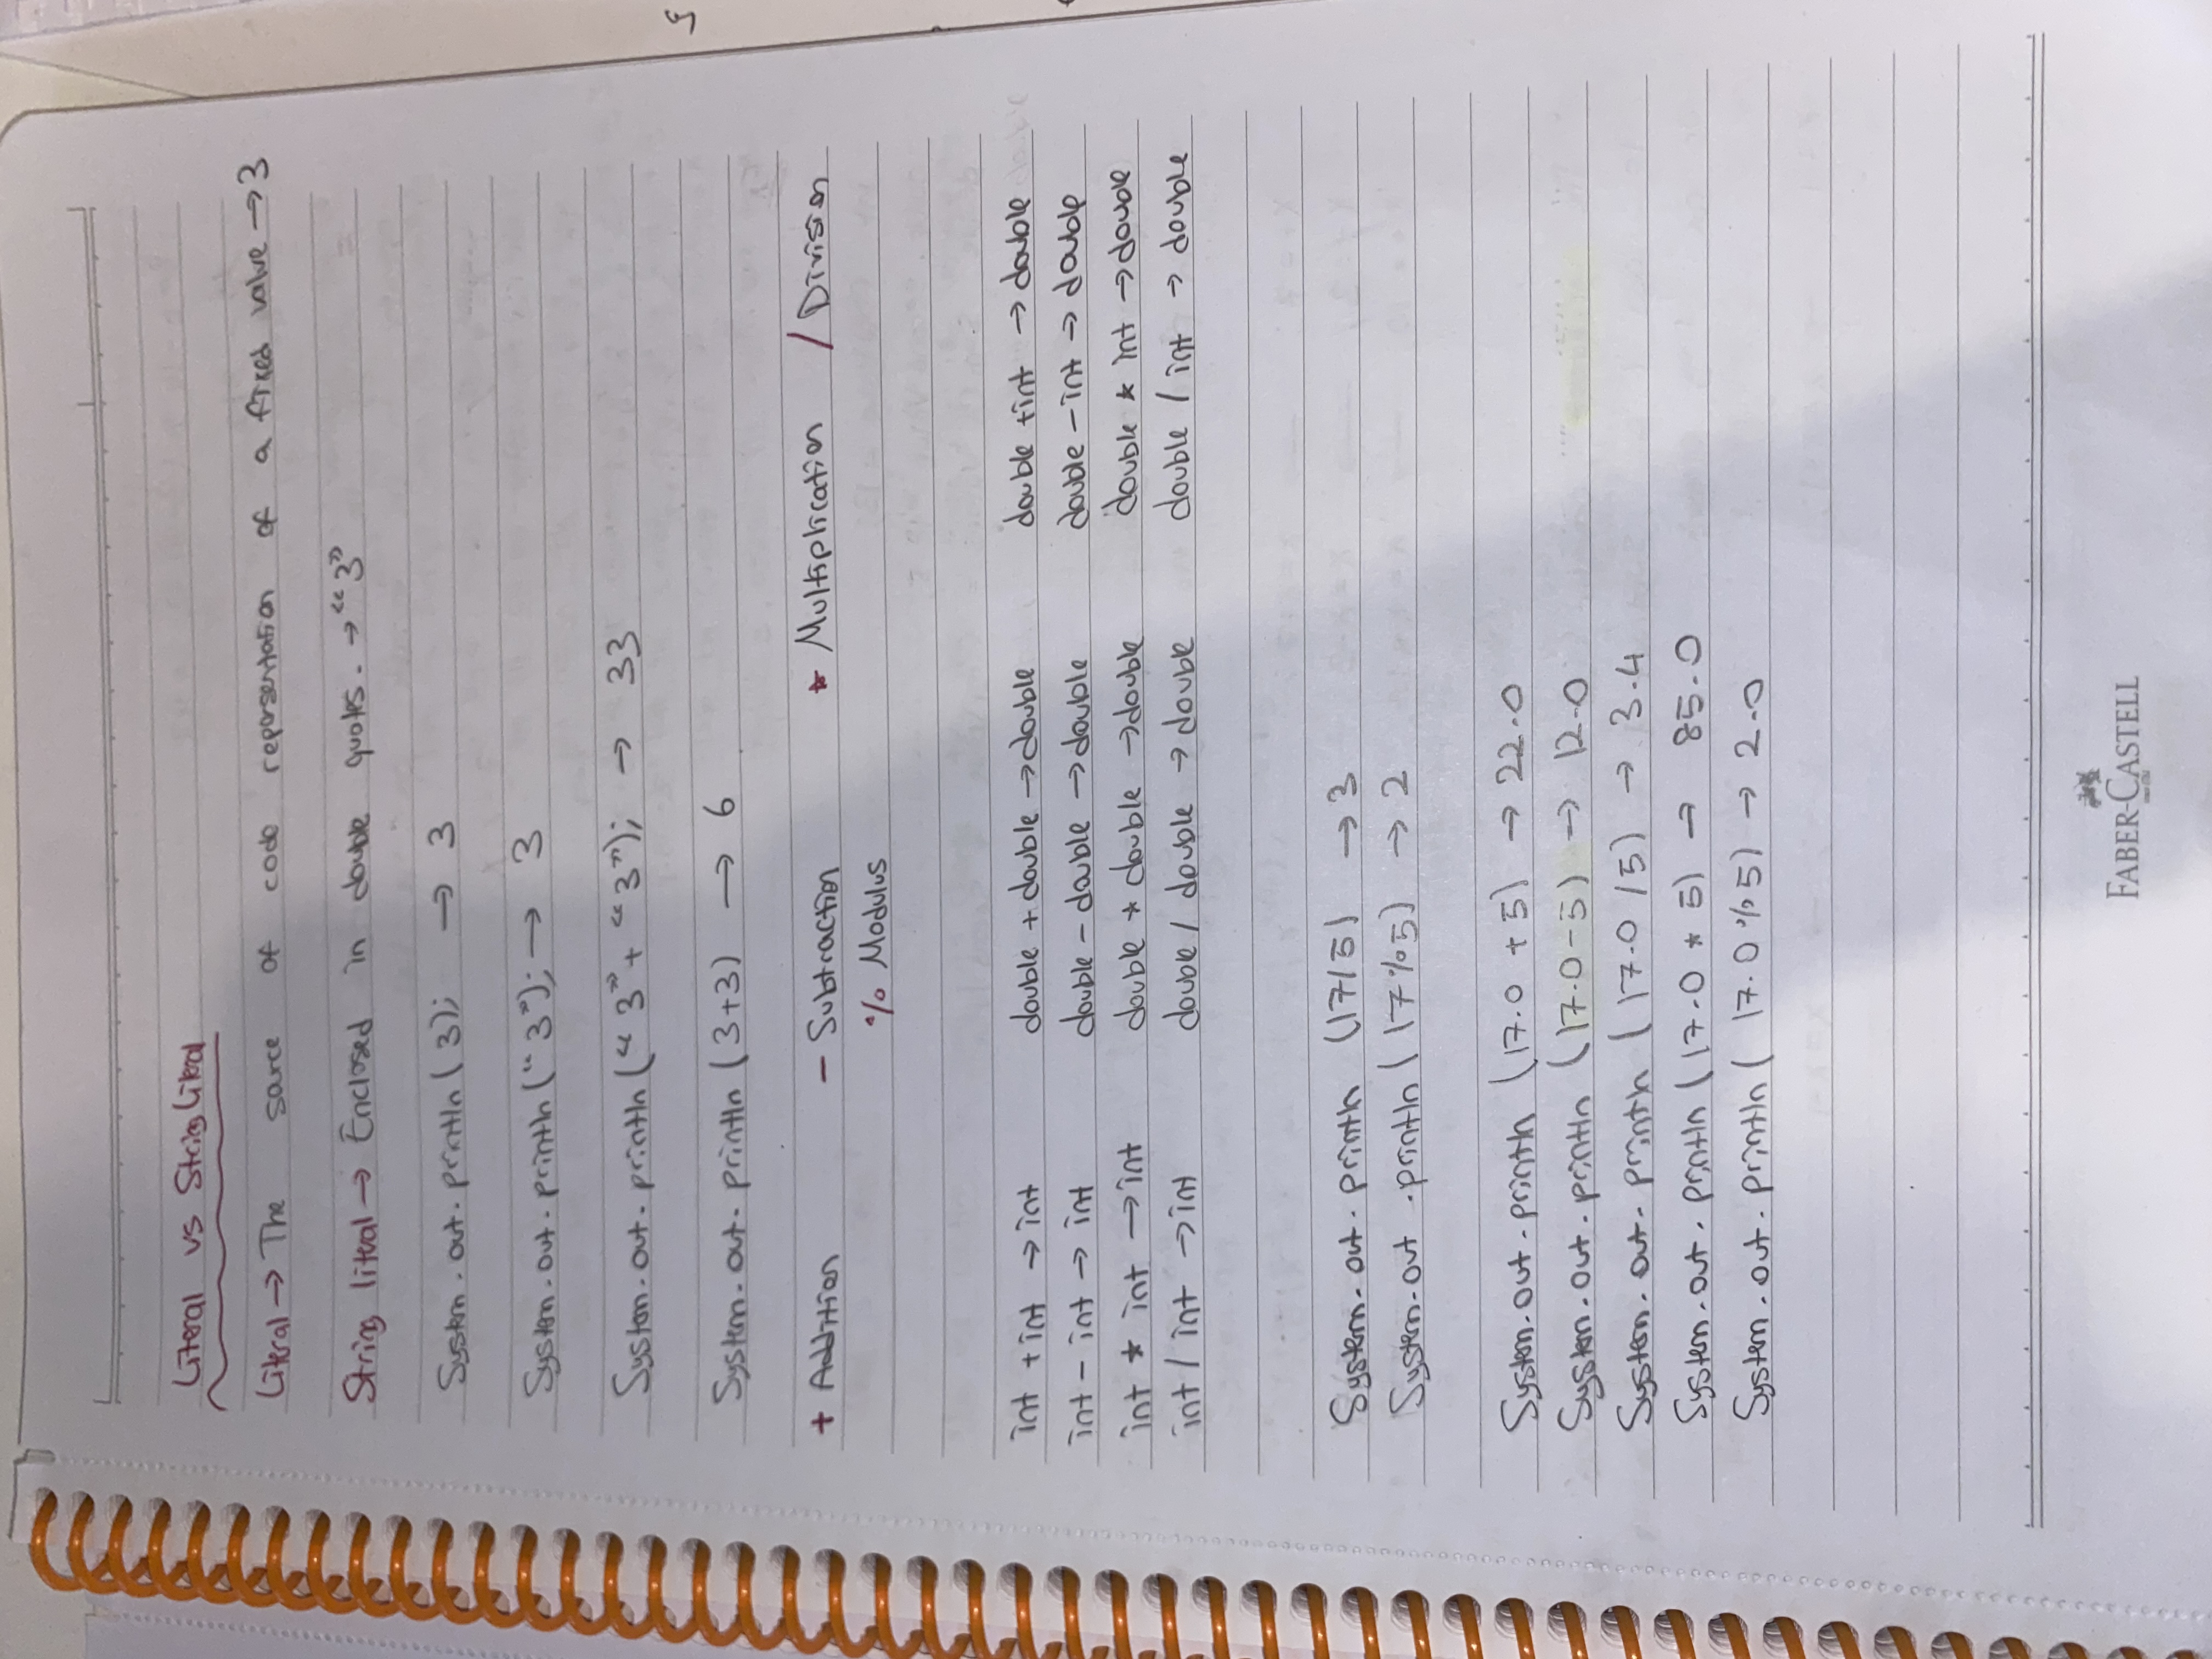 Literal vs String Literal
Literal → The source of code reporsentation of a fixed value → 3
String literal → Enclosed in double quotes. → “3”
System.out.println(3); → 3
System.out.println(“3”); → 3
System.out.println(“3” + “3”); → 33
System.out.println(3+3) → 6
+ Addition - Subtraction * Multiplication / Division
% Modulus
int + int → int double + double → double double + int → double
int - int → int double - double → double double - int → double
int * int → int double * double → double double * int → double
int / int → int double / double → double double / int → double
System.out.println (17/5) → 3
System.out.println (17%5) → 2
System.out.println (17.0 + 5) → 22.0
System.out.println (17.0-5) → 12.0
System.out.println (17.0 /5) → 3.4
System.out.println (17.0 * 5) → 85.0
System.out.println ( 17.0 % 5) → 2.0
FABER-CASTELL